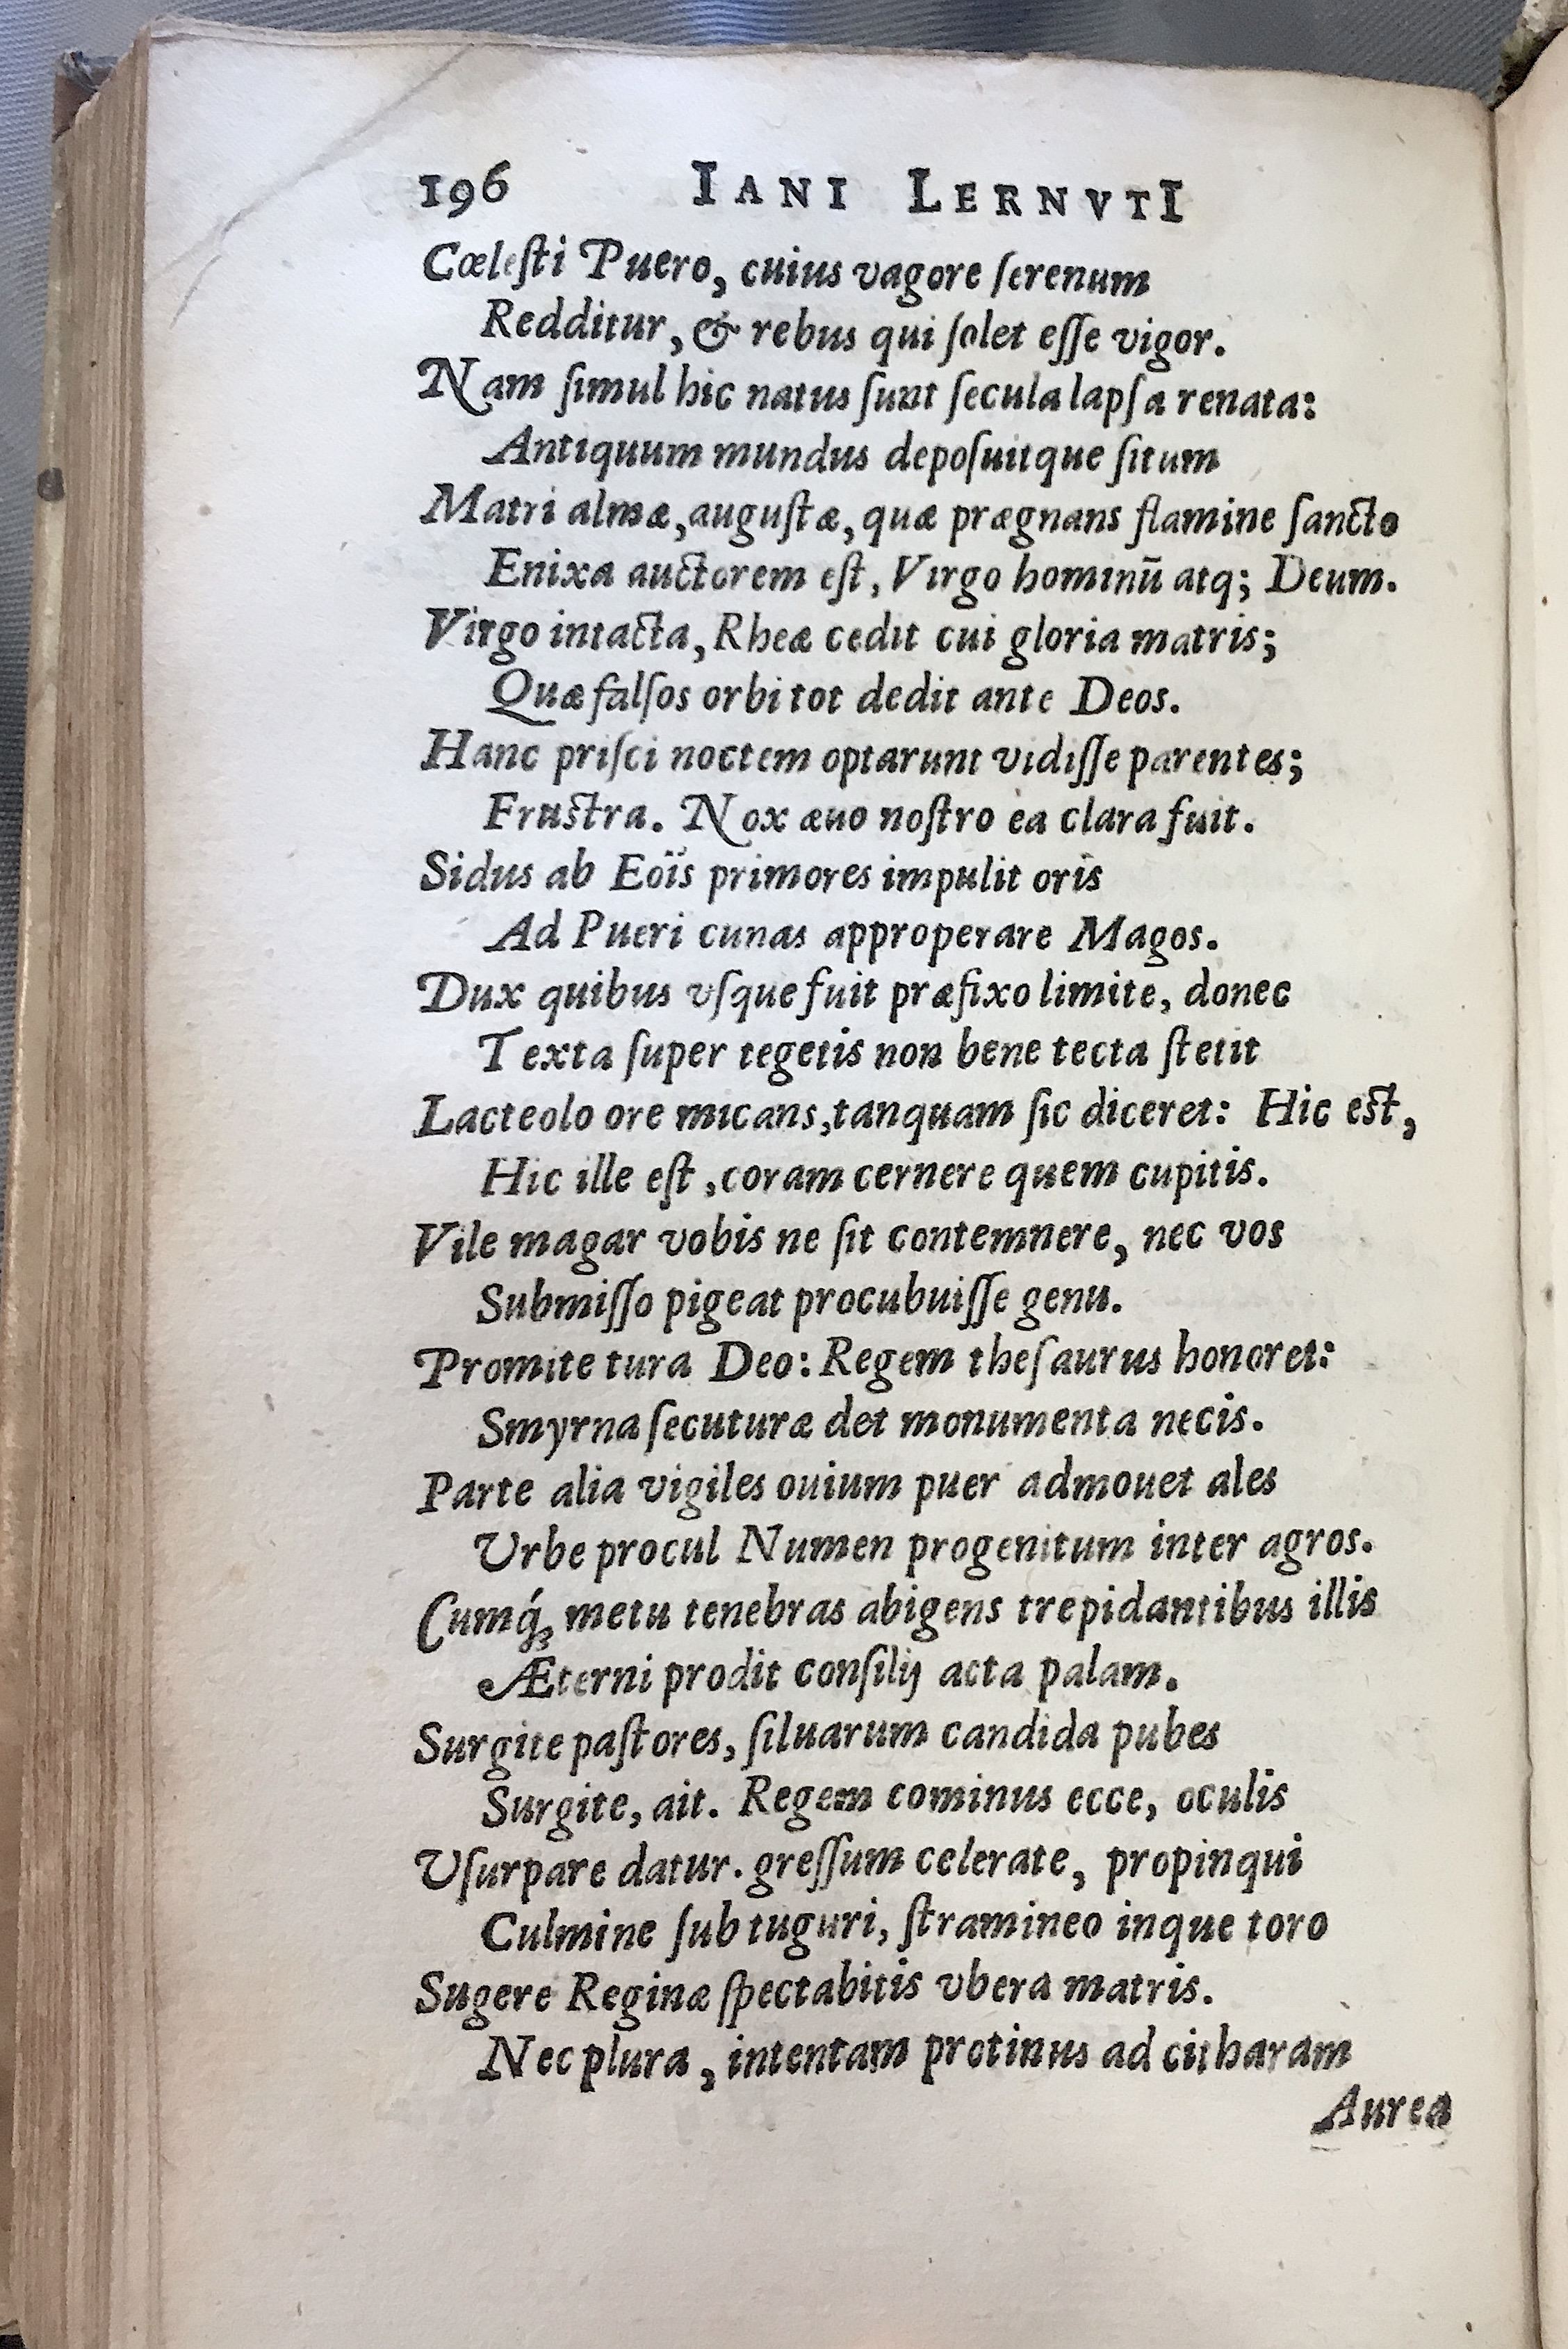 196 IANI LERNVTI
Cœleſti Puero, cuius vagore ſerenum
Redditur, & rebus qui ſolet eſſe vigor.
Nam ſimul hic natus ſunt ſecula lapſa renata:
Antiquum mundus depoſuitque ſitum
Matri almæ, auguſtæ, quæ prægnans flamine ſancto
Enixa auctorem eſt, Virgo hominū atq; Deum.
Virgo intacta, Rheæ cedit cui gloria matris;
Quæ falſos orbi tot dedit ante Deos.
Hanc priſci noctem optarunt vidiſſe parentes;
Fruſtra. Nox æuo noſtro ea clara fuit.
Sidus ab Eoïs primores impulit oris
Ad Pueri cunas approperare Magos.
Dux quibus vſque fuit præfixo limite, donec
Texta ſuper tegetis non bene tecta ſtetit
Lacteolo ore micans, tanquam ſic diceret: Hic eſt,
Hic ille eſt, coram cernere quem cupitis.
Vile magar vobis ne ſit contemnere, nec vos
Submiſſo pigeat procubuiſſe genu.
Promite tura Deo: Regem theſaurus honoret:
Smyrna ſecuturæ det monumenta necis.
Parte alia vigiles ouium puer admouet ales
Urbe procul Numen progenitum inter agros.
Cumq́; metu tenebras abigens trepidantibus illis
Æterni prodit conſilij acta palam.
Surgite paſtores, ſiluarum candida pubes
Surgite, ait. Regem cominus ecce, oculis
Uſurpare datur. greſſum celerate, propinqui
Culmine ſub tuguri, ſtramineo inque toro
Sugere Reginæ ſpectabitis vbera matris.
Nec plura, intentam protinus ad citharam
Aurea